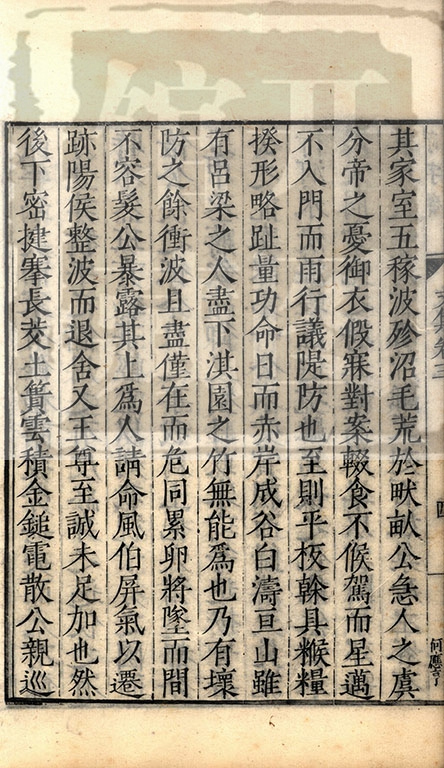 其家室五稼波殄沼毛荒於畎畝公急人之虞
分帝之憂御衣假寐對案輟食不候駕而星邁
不入門而雨行議隄防也至則平板榦具糇糧
揆形略趾量功命日而赤岸成谷白濤亘山雖
有呂梁之人盡下淇園之竹無能爲也乃有壞
防之餘衝波且盡僅在而危同累卵將墜而間
不容髮公暴露其上爲人請命風伯屏氣以遷
跡陽侯整波而退舍又王尊至誠未足加也然
後下密揵搴長茭土篑雲積金鎚電散公親巡
四